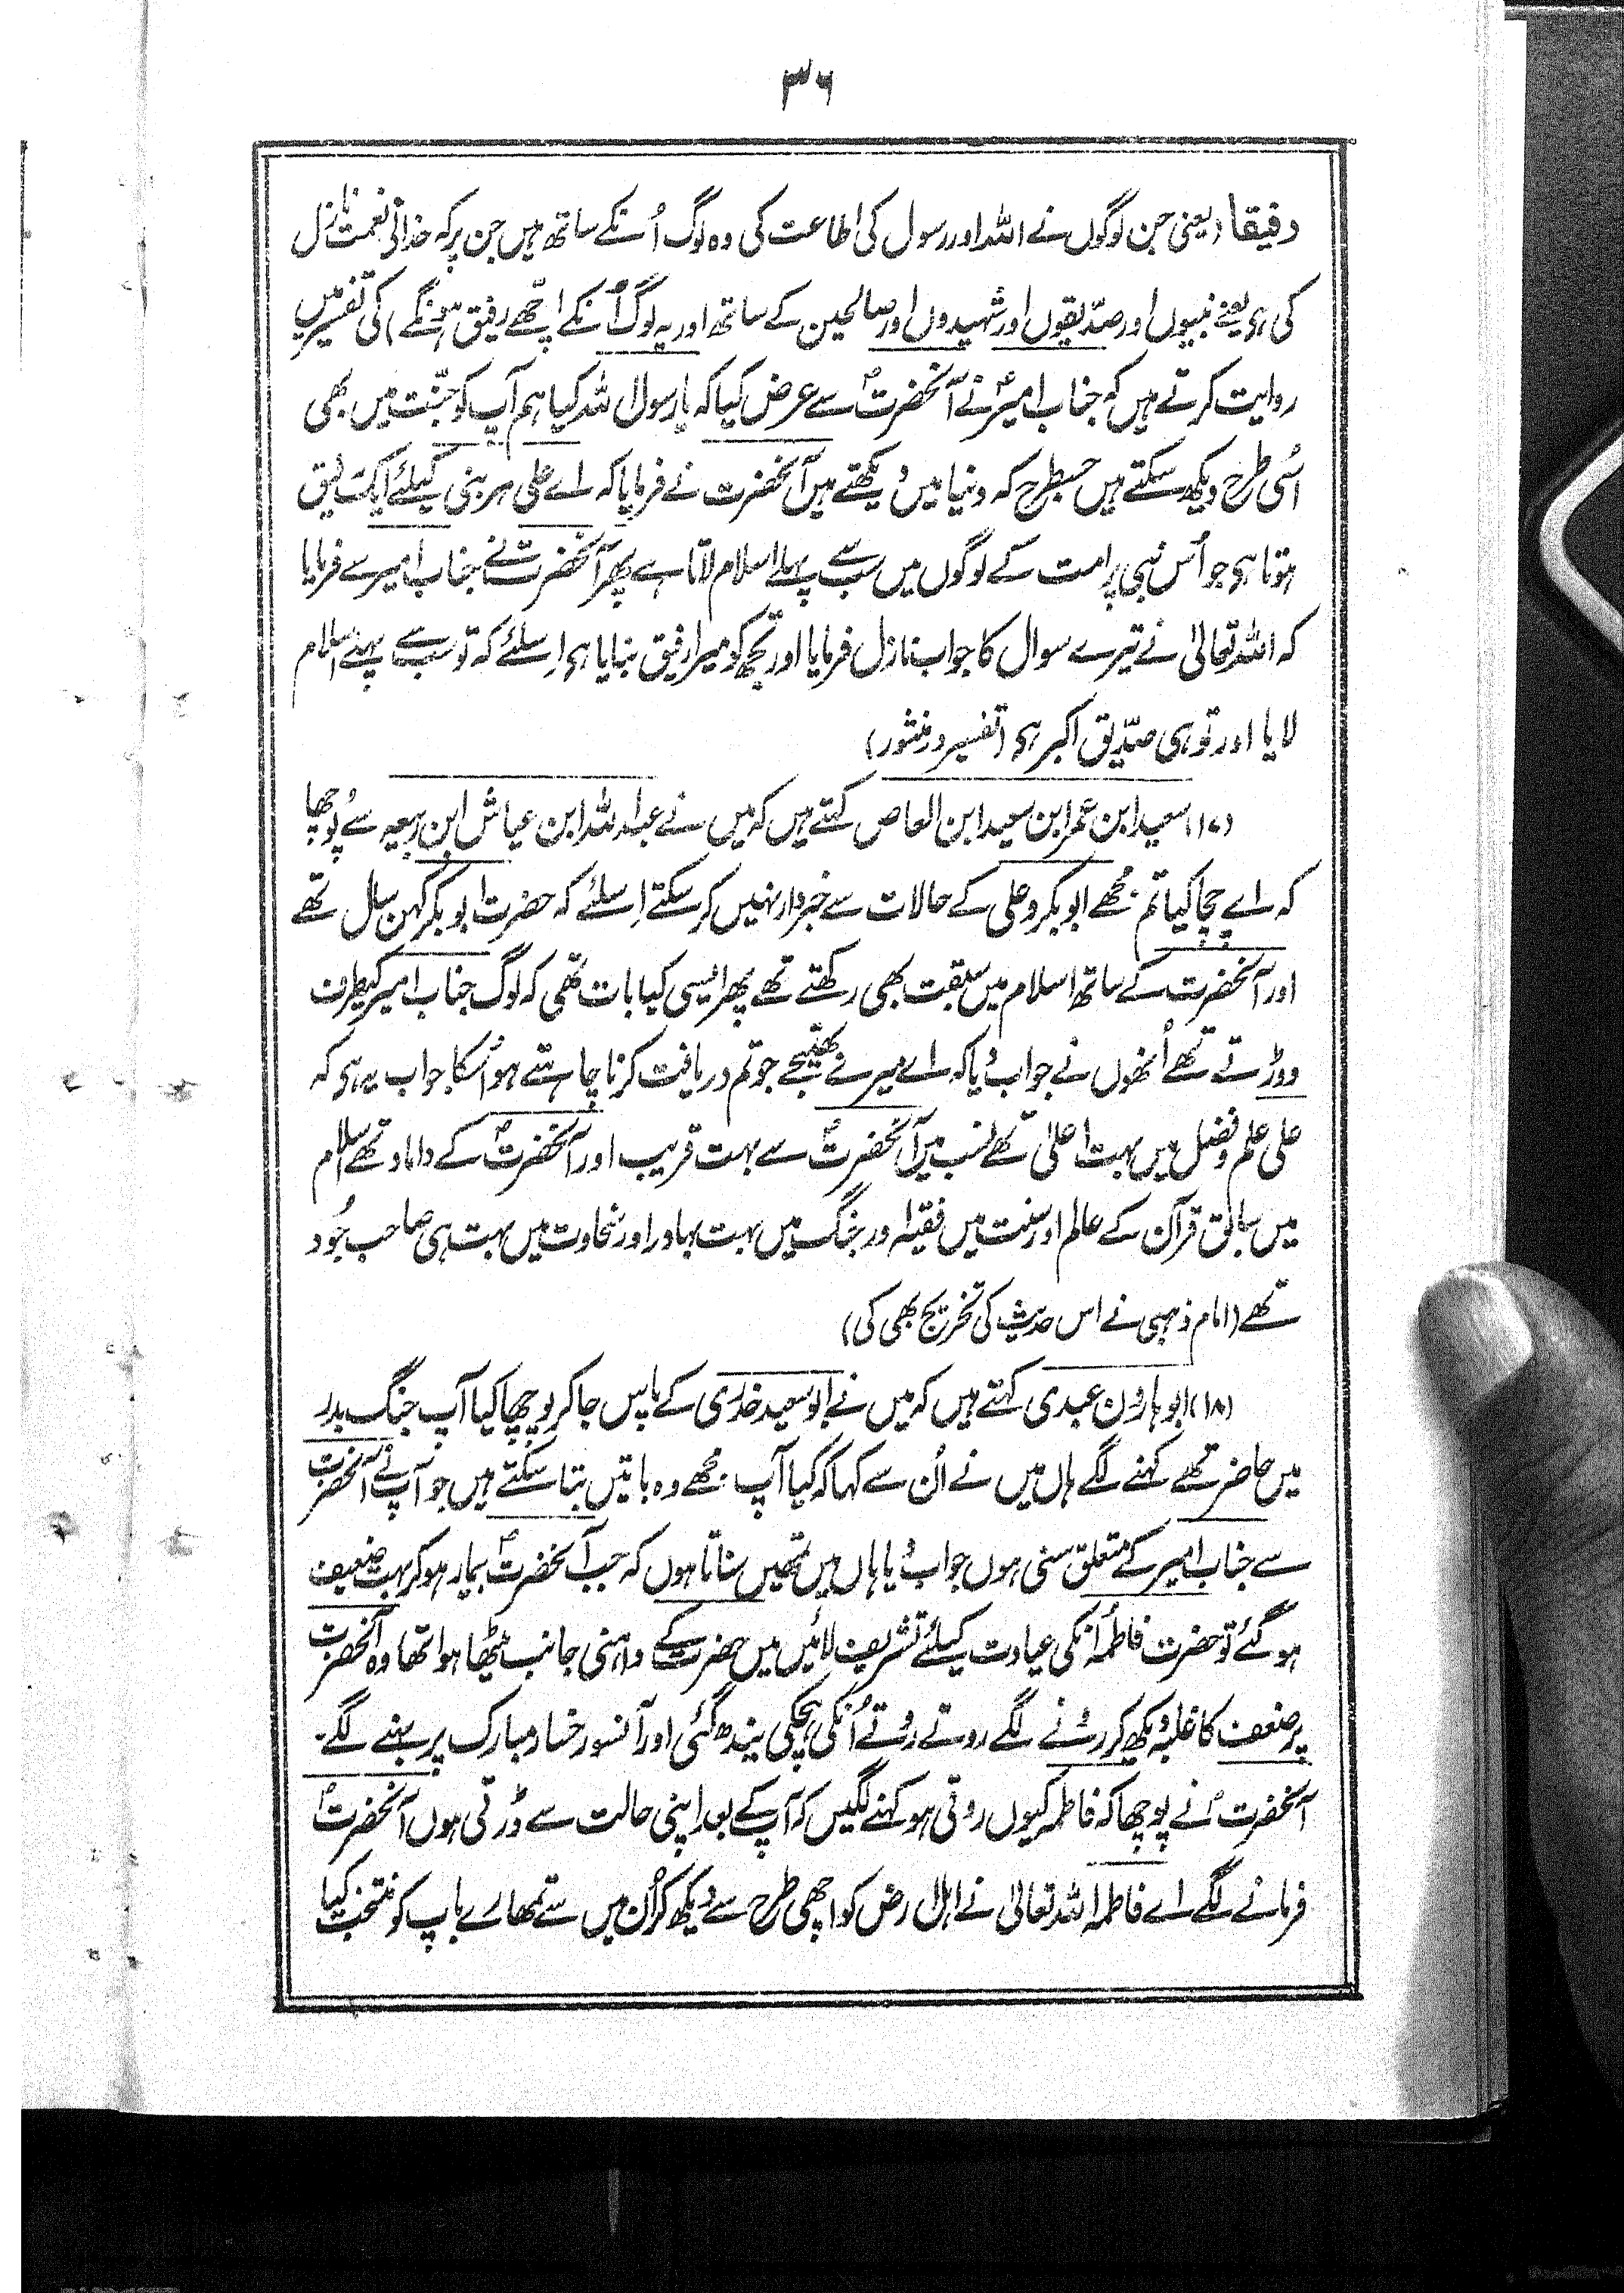 ۳۶
دفیقا (یعنی جن لوگوں نے اللہ اور رسول کی اطاعت کی وہ لوگ اُنکے ساتھ ہیں جن پر کہ خدا نے نعمت نازل
کی ہی یعنے نبیوں اور صدّیقوں اور شہیدوں اور صالحین کے ساتھ اور یہ لوگ اُنکے اچھے رفیق ہونگے) کی تفسیر میں
روایت کرتے ہیں کہ جناب امیرؑ نے آنحضرتؐ سے عرض کیا کہ یا رسول اللہ کیا ہم آپ کو جنّت میں بھی
اُسی طرح دیکھ سکتے ہیں جسطرح کہ دنیا میں دیکھتے ہیں آنحضرت نے فرمایا کہ اے علی ہر نبی کیلئے ایک رفیق
ہوتا ہی جو اُس نبی پر امت کے لوگوں میں سب سے پہلے اسلام لاتا ہے پھر آنحضرت نے جناب امیر سے فرمایا
کہ اللہ تعالیٰ نے تیرے سوال کا جواب نازل فرمایا اور تجھ کو میرا رفیق بنایا ہی اِسلئے کہ تو سب سے پہلے اسلام
لایا اور تو ہی صدّیق اکبر ہی (تفسیر در منثور)
(۱۷) سعید ابن عمر ابن سعید ابن العاص کہتے ہیں کہ میں نے عبداللہ ابن عیاش ابن ربیعہ سے پُوچھا
کہ اے چچا کیا تم مجُھے ابو بکر و علی کے حالات سے خبردار نہیں کر سکتے اِسلئے کہ حضرت ابو بکر کہن سال تھے
اور آنحضرت کے ساتھ اسلام میں سبقت بھی رکھتے تھے پھر ایسی کیا بات تھی کہ لوگ جناب امیر کیطرف
دوڑتے تھے اُنھوں نے جواب دیا کہ اے میرے بھتیجے جو تم دریافت کرنا چاہتے ہو اُسکا جواب یہ ہی کہ
علی علم و فضل میں بہت اعلیٰ تھے نسب میں آنحضرتؐ سے بہت قریب اور آنحضرتؐ کے داماد تھے اسلام
میں سابق قرآن کے عالم اور سنت میں فقیہ اور جنگ میں بہت بہادر اور سخاوت میں بہت ہی صاحب جُود
تھے (امام ذہبی نے اس حدیث کی تخریج بھی کی)
(۱۸) ابو ہارون عبدی کہتے ہیں کہ میں نے ابو سعید خدری کے پاس جا کر پوچھا کیا آپ جنگ بدر
میں حاضر تھے کہنے لگے ہاں میں نے اُن سے کہا کہ کیا آپ مجُھے وہ باتیں بتا سکتے ہیں جو آپ نے آنحضرت
سے جناب امیر کے متعلق سنی ہوں جواب دیا ہاں میں تمھیں سناتا ہوں کہ جب آنحضرتؐ بیمار ہو کر بہت ضعیف
ہو گئے تو حضرت فاطمہؑ اُنکی عیادت کیلئے تشریف لائیں میں حضرت کے داہنی جانب بیٹھا ہوا تھا وہ آنحضرت
پر ضعف کا غلبہ دیکھ کر رونے لگے روتے روتے اُنکی ہچکی بندھ گئی اور آنسو رخسار مبارک پر بہنے لگے۔
آنحضرتؐ نے پوچھا کہ فاطمہ کیوں روتی ہو کہنے لگیں کہ آپ کے بعد اپنی حالت سے ڈرتی ہوں آنحضرتؐ
فرمانے لگے اے فاطمہ اللہ تعالیٰ نے اہل ارض کو اچھی طرح سے دیکھ کر اُن میں سے تمھارے باپ کو منتخب کیا